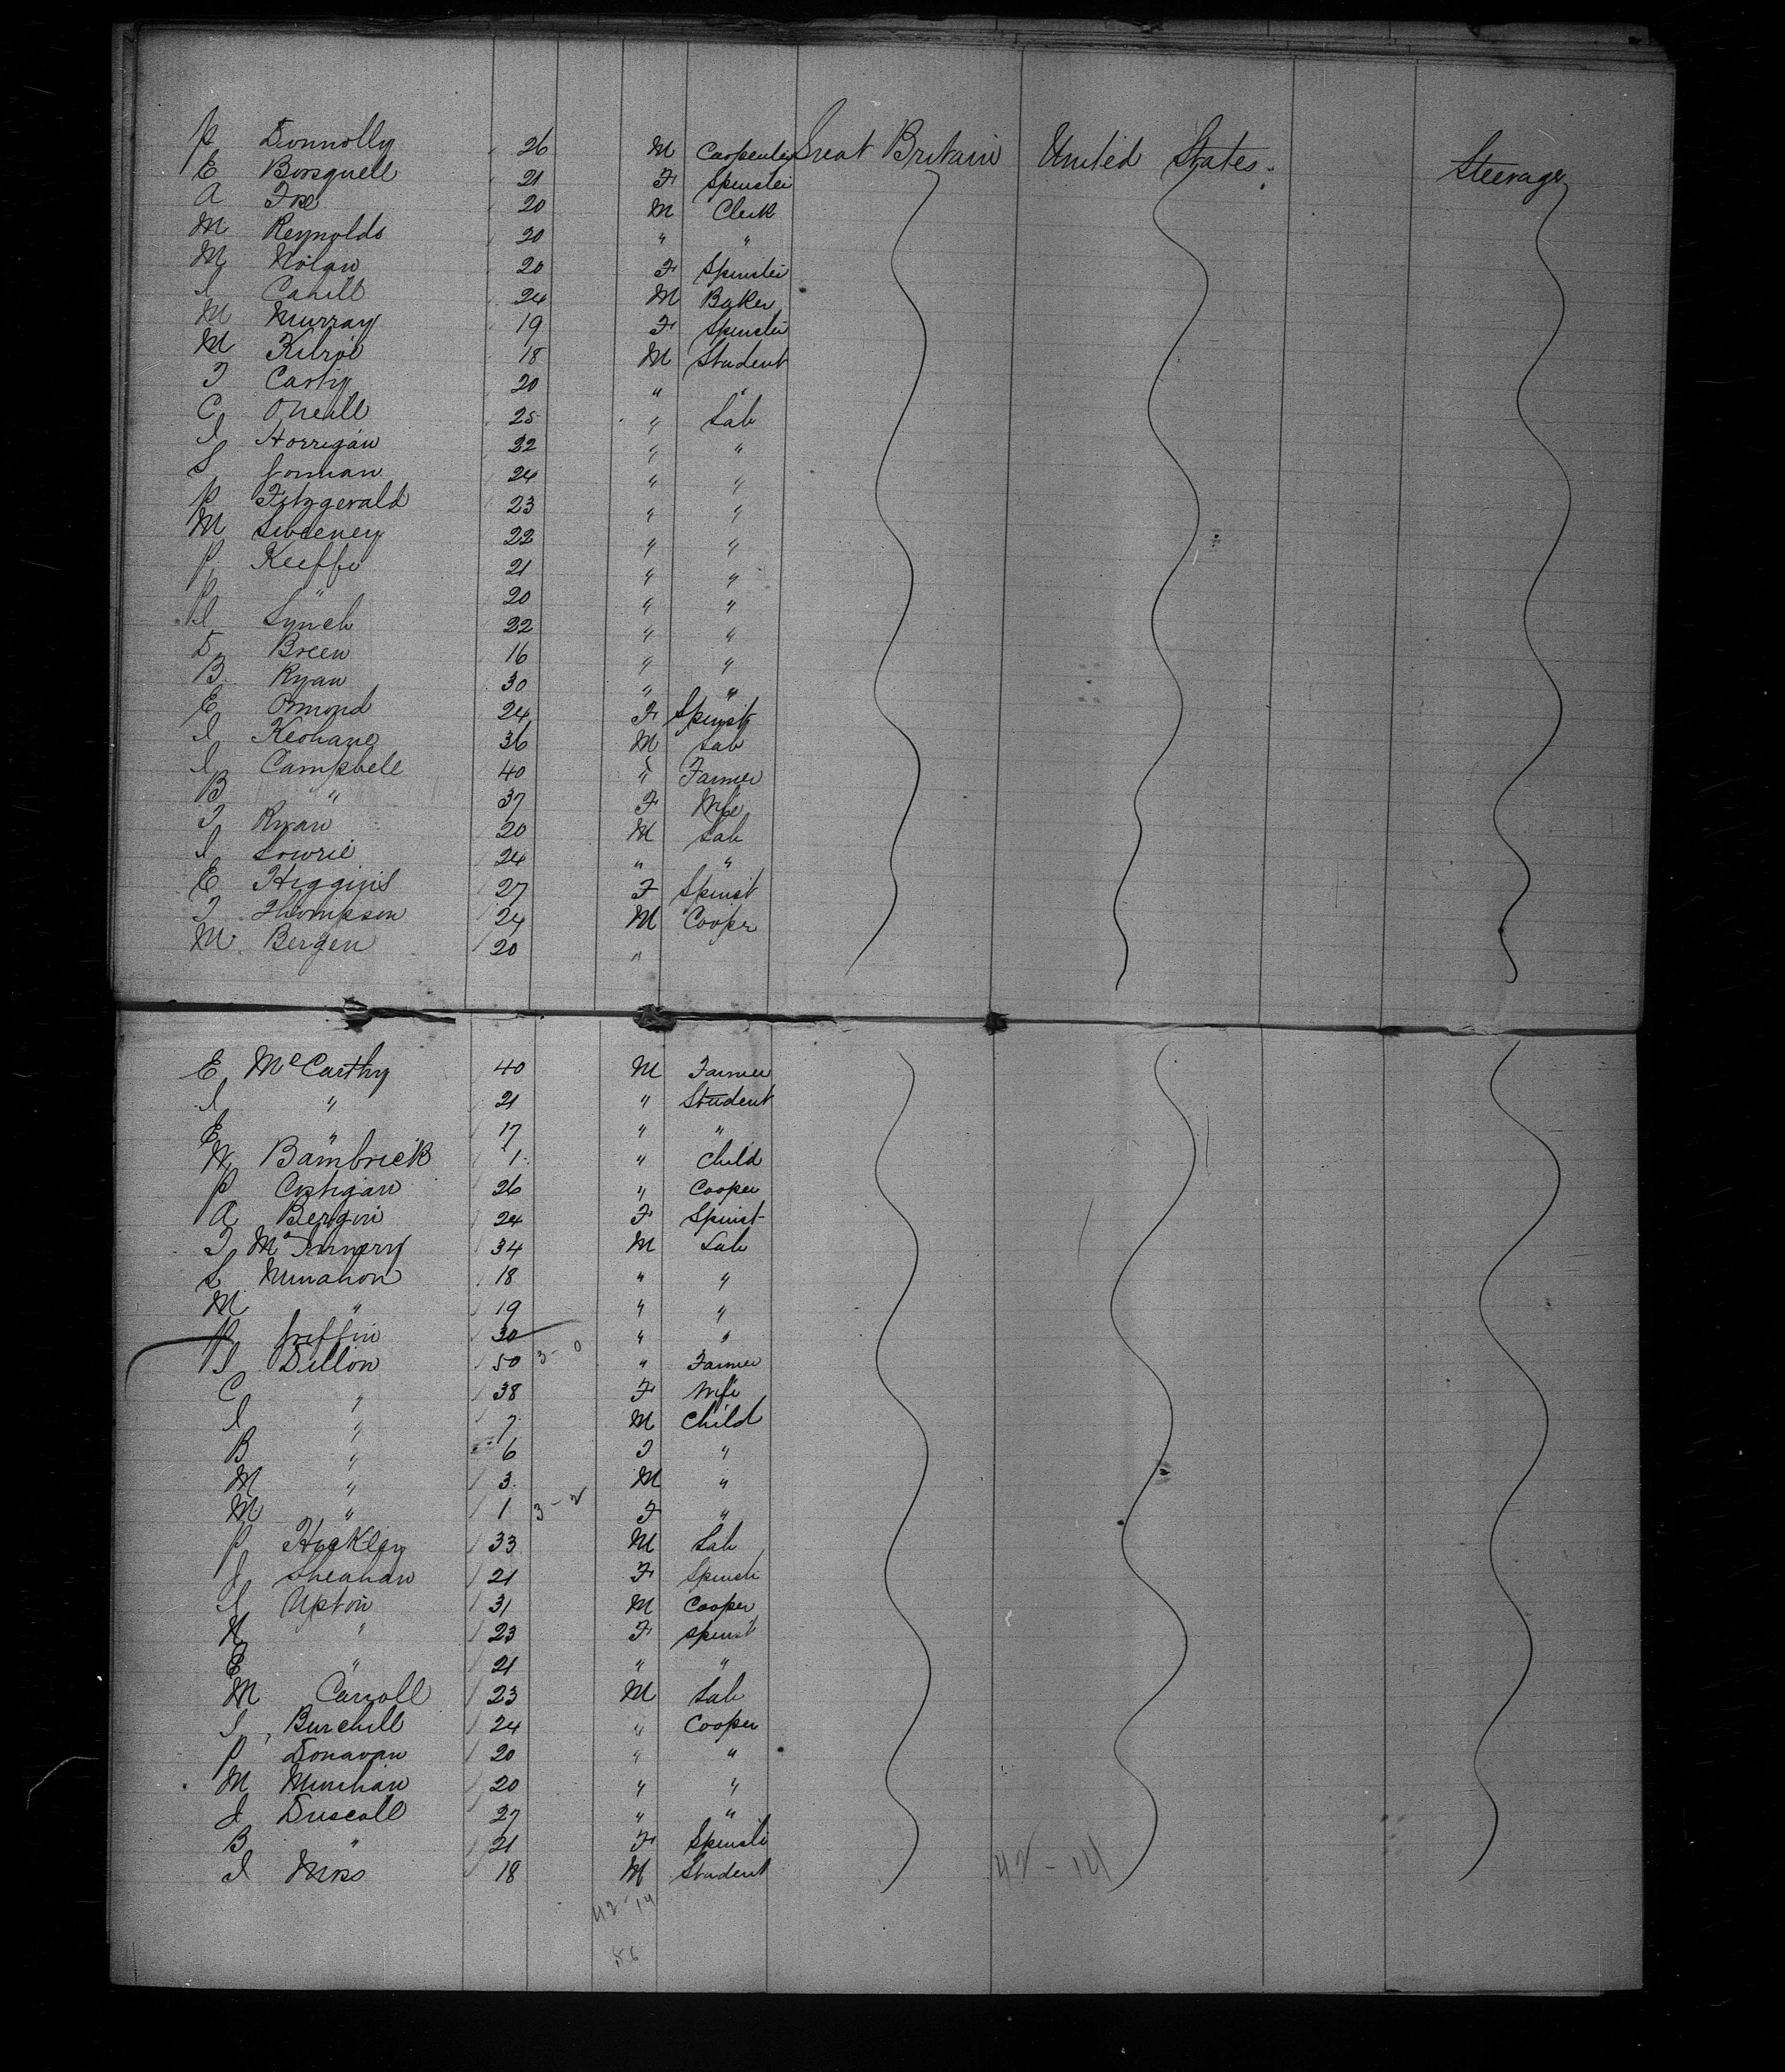 P Donnolly 26 M Carpenter Great Britain United States. Steerage
E Bosquell 21 F Spinster
A Fox 20 M Clerk
M Reynolds 20 " "
M Nolan 20 F Spinster
J Cahill 24 M Baker
M Murray 19 F Spinster
M Kilroe 18 M Student
T Casty 20 " "
C O'Neill 25 " Lab
J Horrigan 22 " "
S Gorman 24 " "
P Fitzgerald 23 " "
M Sweeney 22 " "
P Keeffe 21 " "
P " 20 " "
J Lynch 22 " "
D Breen 16 " "
B Ryan 30 " "
E Ormond 24 F Spinst
J Keohane 36 M Lab
J Campbell 40 " Farmer
B " 37 F Wife
T Ryan 20 M Lab
J Lowrie 24 " "
E Higgins 27 F Spinst
T Thompson 24 M Cooper
M Bergen 20 "
E McCarthy 40 M Farmer
J " 21 " Student
E " 17 " "
W Bambrick 1 " Child
P Costigan 26 " Cooper
A Bergin 24 F Spinst
T McInnery 34 M Lab
S Minahon 18 " "
M " 19 " "
P Griffin 30 " "
J Dillon 50 3-0 " Farmer
C " 38 F Wife
J " 7 M Child
B " 6 F "
M " 3 M "
M " 1 3-2 F "
P Hockley 33 M Lab
J Sheahan 21 F Spinste
J Upton 31 M Cooper
N " 23 F Spinst
E " 21 " "
M Carroll 23 M Lab
J Burchill 24 " Cooper
P Donavan 20 " "
M Minehan 20 " "
J Driscoll 27 " "
B " 21 F Spinste
J Moss 18 M Student
42-14 42-14
56